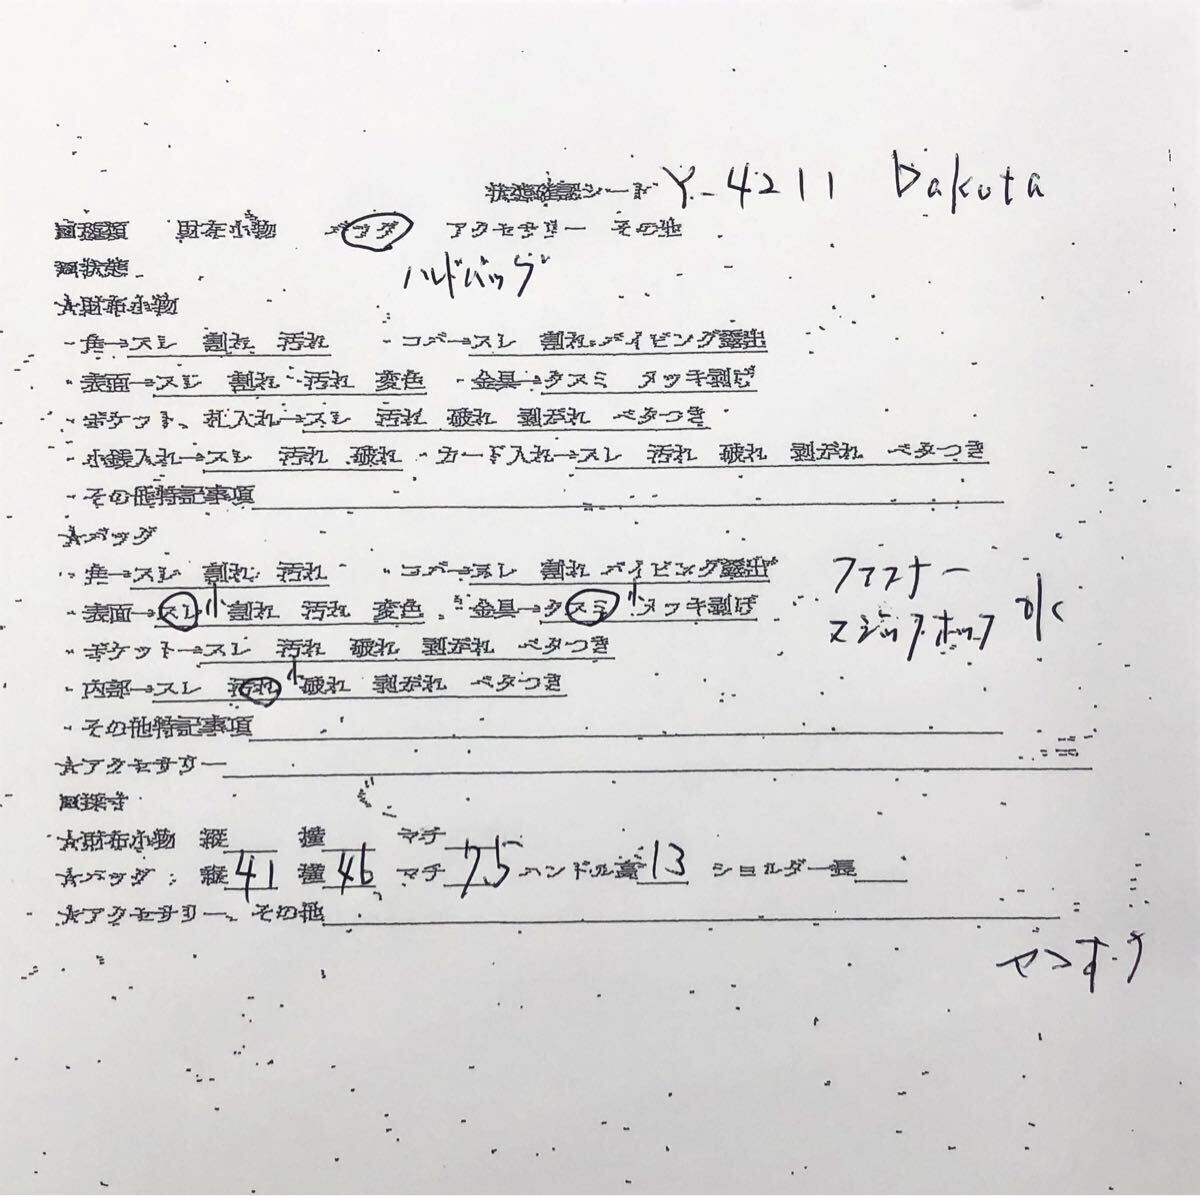 状態確認シート Y-4211 Dakota
□種類 財布小物 バッグ アクセサリー その他
□状態 ハンドバッグ
★財布小物
・角→スレ 割れ 汚れ ・コバ→スレ 割れ パイピング露出
・表面→スレ 割れ 汚れ 変色 ・金具→クスミ メッキ剥げ
・ポケット、札入れ→スレ 汚れ 破れ 剥がれ ベタつき
・小銭入れ→スレ 汚れ 破れ ・カード入れ→スレ 汚れ 破れ 剥がれ ベタつき
・その他特記事項
★バッグ
・角→スレ 割れ 汚れ ・コバ→スレ 割れ パイピング露出 ファスナー
・表面→スレ 小 割れ 汚れ 変色 ・金具→クスミ 小 メッキ剥げ
・ポケット→スレ 汚れ 破れ 剥がれ ベタつき
・内部→スレ 汚れ 小 破れ 剥がれ ベタつき
・その他特記事項
★アクセサリー
□採寸
★財布小物 縦 横 マチ
★バッグ:縦41 横46 マチ75 ハンドル高13 ショルダー長
★アクセサリー、その他